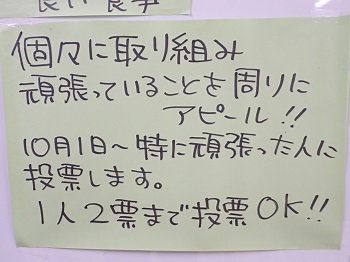 良い食事
個々に取り組み
頑張っていることを周りに
アピール!!
10月1日〜特に頑張った人に
投票します。
1人2票まで投票OK!!